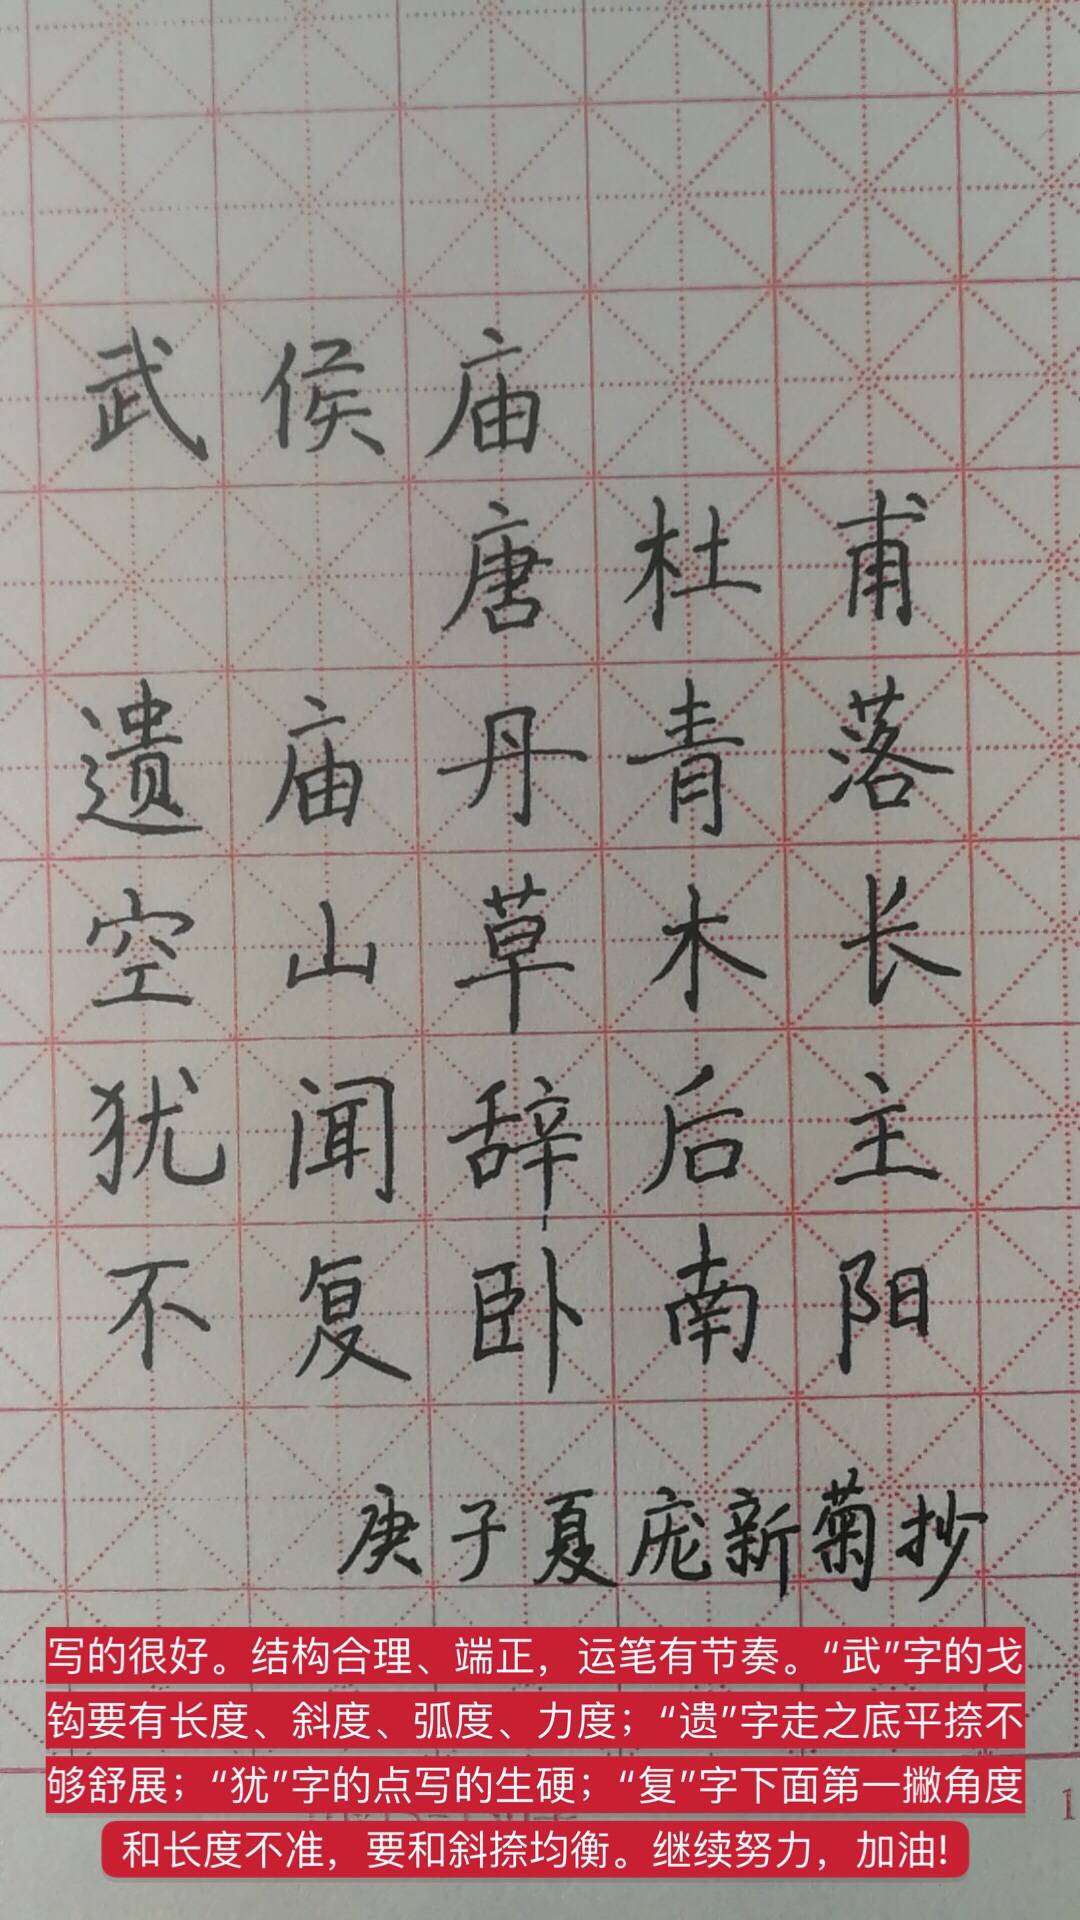 武侯庙
唐杜甫
遗庙丹青落
空山草木长
犹闻辞后主
不复卧南阳
庚子夏庞新菊抄
写的很好。结构合理、端正，运笔有节奏。“武”字的戈
钩要有长度、斜度、弧度、力度；“遗”字走之底平捺不
够舒展；“犹”字的点写的生硬；“复”字下面第一撇角度
和长度不准，要和斜捺均衡。继续努力，加油!
1